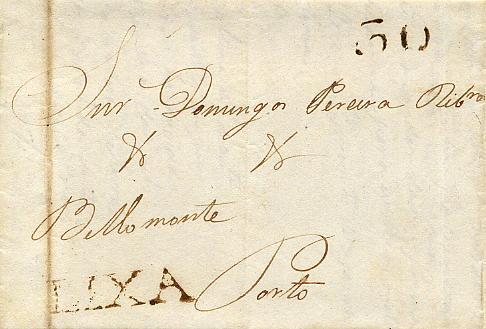 50
Snr Domingos Pereira Ribro
Bellomonte
LIXA Porto